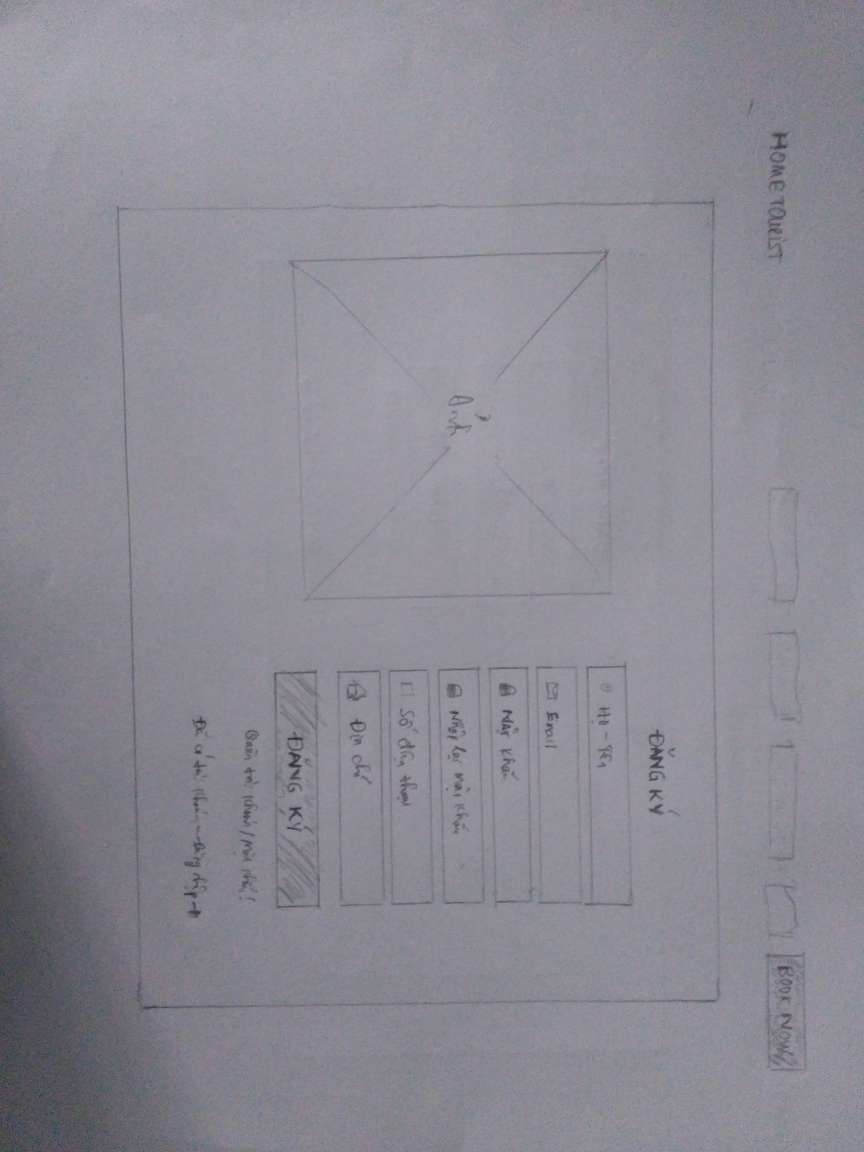 HOME TOURIST
BOOK NOW
Ảnh
ĐĂNG KÝ
Họ - tên
Email
Mật khẩu
Nhập lại mật khẩu
Số điện thoại
Địa chỉ
ĐĂNG KÝ
Quên tài khoản / mật khẩu?
Đã có tài khoản - đăng nhập →